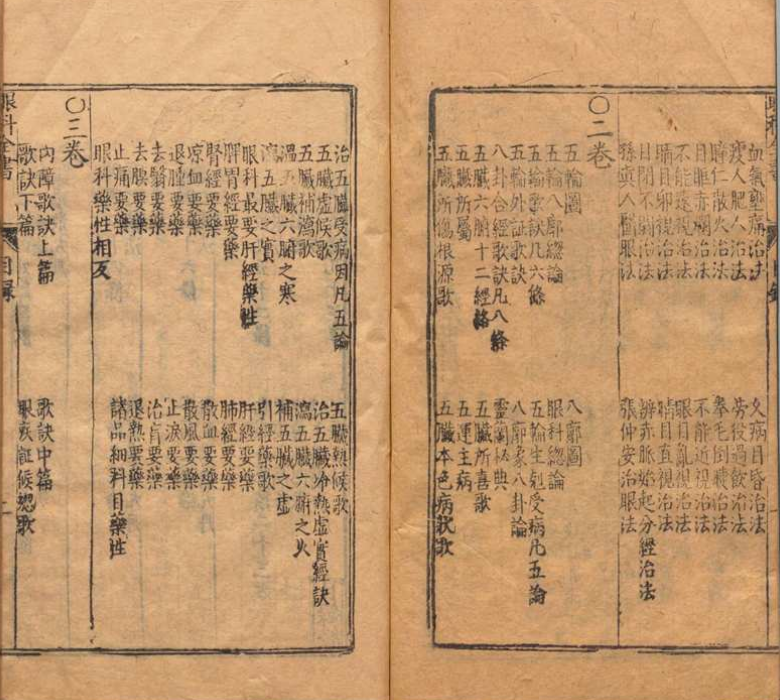 血氣痛治法 久病目昏治法
瘦人肥人治法 勞役過飲治法
瞳仁散大治法 拳毛倒睫治法
目眶赤爛治法 不能近視治法
不能遠視治法 眼目亂視治法
睛目視治法 睛目直視治法
目閉不開治法 辨赤脈始起分經治法
孫真人醫眼法 張仲安治眼法
〇二卷
五輪圖 八廓圖
五輪八廓總論 眼科總論
五輪歌訣凡六條 五輪生剋受病凡五論
五輪外証歌訣 八廓象八卦論
八卦合經歌訣凡八條 靈蘭秘典
五臟六腑十二經絡 五臟所喜歌
五臟所屬 五運主病
五臟所傷根源歌 五臟本色病歌
治五臟受病因凡五論 五臟熱候歌
五臟虛候歌 治五臟冷熱虛實經訣
五臟補瀉歌 瀉五臟六腑之火
溫五臟六腑之寒 補五臟之虛
瀉五臟之實 引經藥歌
眼科最要肝經藥性 肝經要藥
脾胃經要藥 肺經要藥
腎經要藥 散血要藥
涼血要藥 散風要藥
退腫要藥 止淚要藥
去翳要藥 治盲要藥
去膜要藥 退熱要藥
止痛要藥 諸品細科目藥性
眼科藥性相反
〇三卷
內障歌訣上篇 歌訣中篇
歌訣下篇 眼疾証候總歌
眼科全書 目錄